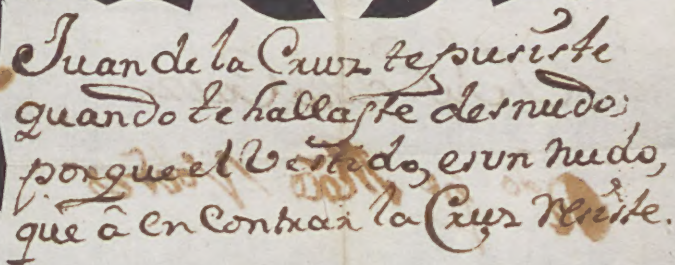 Juan de la Cruz te pusiste
quando te hallaste desnudo;
porque el Vestido, es un nudo,
que â encontrar la Cruz resiste.